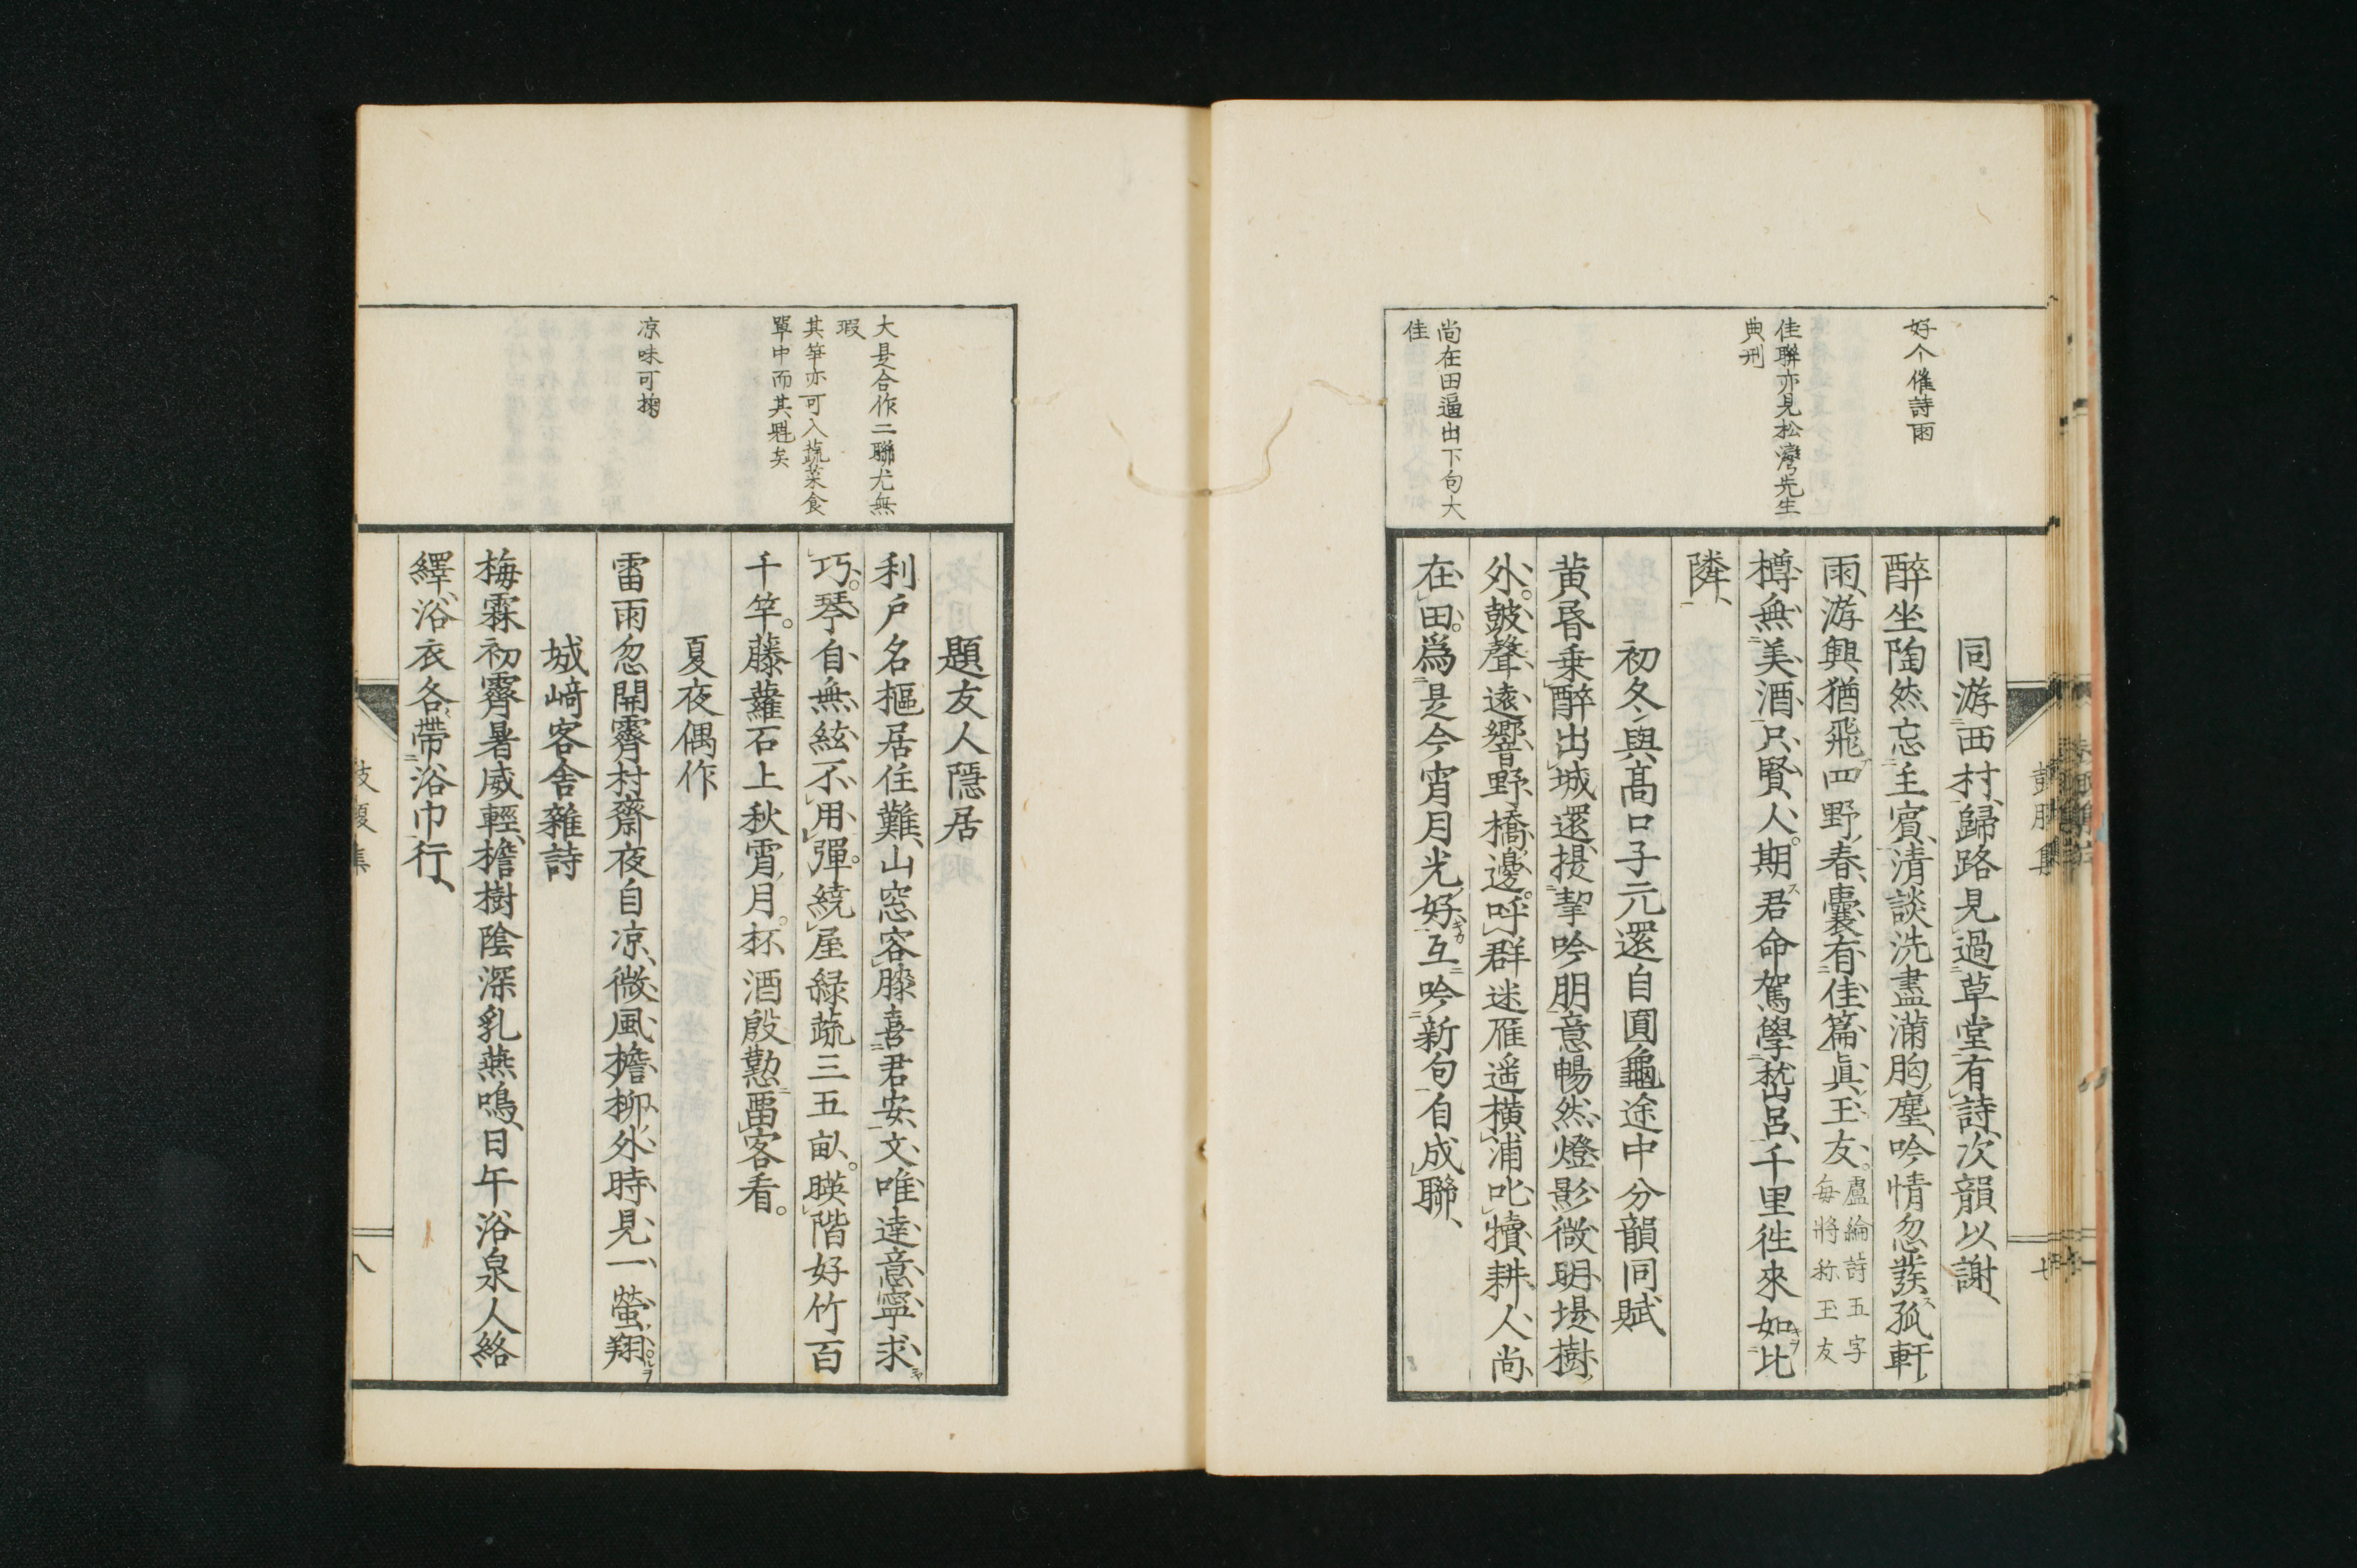 好个催詩雨
佳聯亦見松灣先生
典刑
尚在田逼出下句大
佳
同游西村歸路見過草堂有詩次韻以謝
醉坐陶然忘主賓清談洗盡滿胸塵吟情忽發孤軒
雨游興猶飛四野春囊有佳篇眞玉友盧綸詩五字
每將称玉友
樽無美酒只賢人期君命駕學嵆呂千里徃來如比
隣
初冬與髙口子元還自圓龜途中分韻同賦
黄昏乗醉出城還提挈吟朋意暢然燈影微明堤樹
外鼓聲遠響野橋邊呼群迷雁遥横浦叱犢耕人尚
在田爲是今宵月光好互吟新句自成聯
大是合作二聯尤無
瑕
其笋亦可入蔬菜食
單中而其魁矣
凉味可掬
題友人隱居
利戸名樞居住難山窓容膝喜君安文唯達意寧求
巧琴自無絃不用彈繞屋緑蔬三五畝映階好竹百
千竿藤蘿石上秋宵月杯酒殷懃畱客看
夏夜偶作
雷雨忽開霽村齋夜自凉微風擔柳外時見一螢翔
城﨑客舎雜詩
梅霖初霽暑威輕擔樹陰深乳燕鳴日午浴泉人絡
繹浴衣各帶浴巾行
八